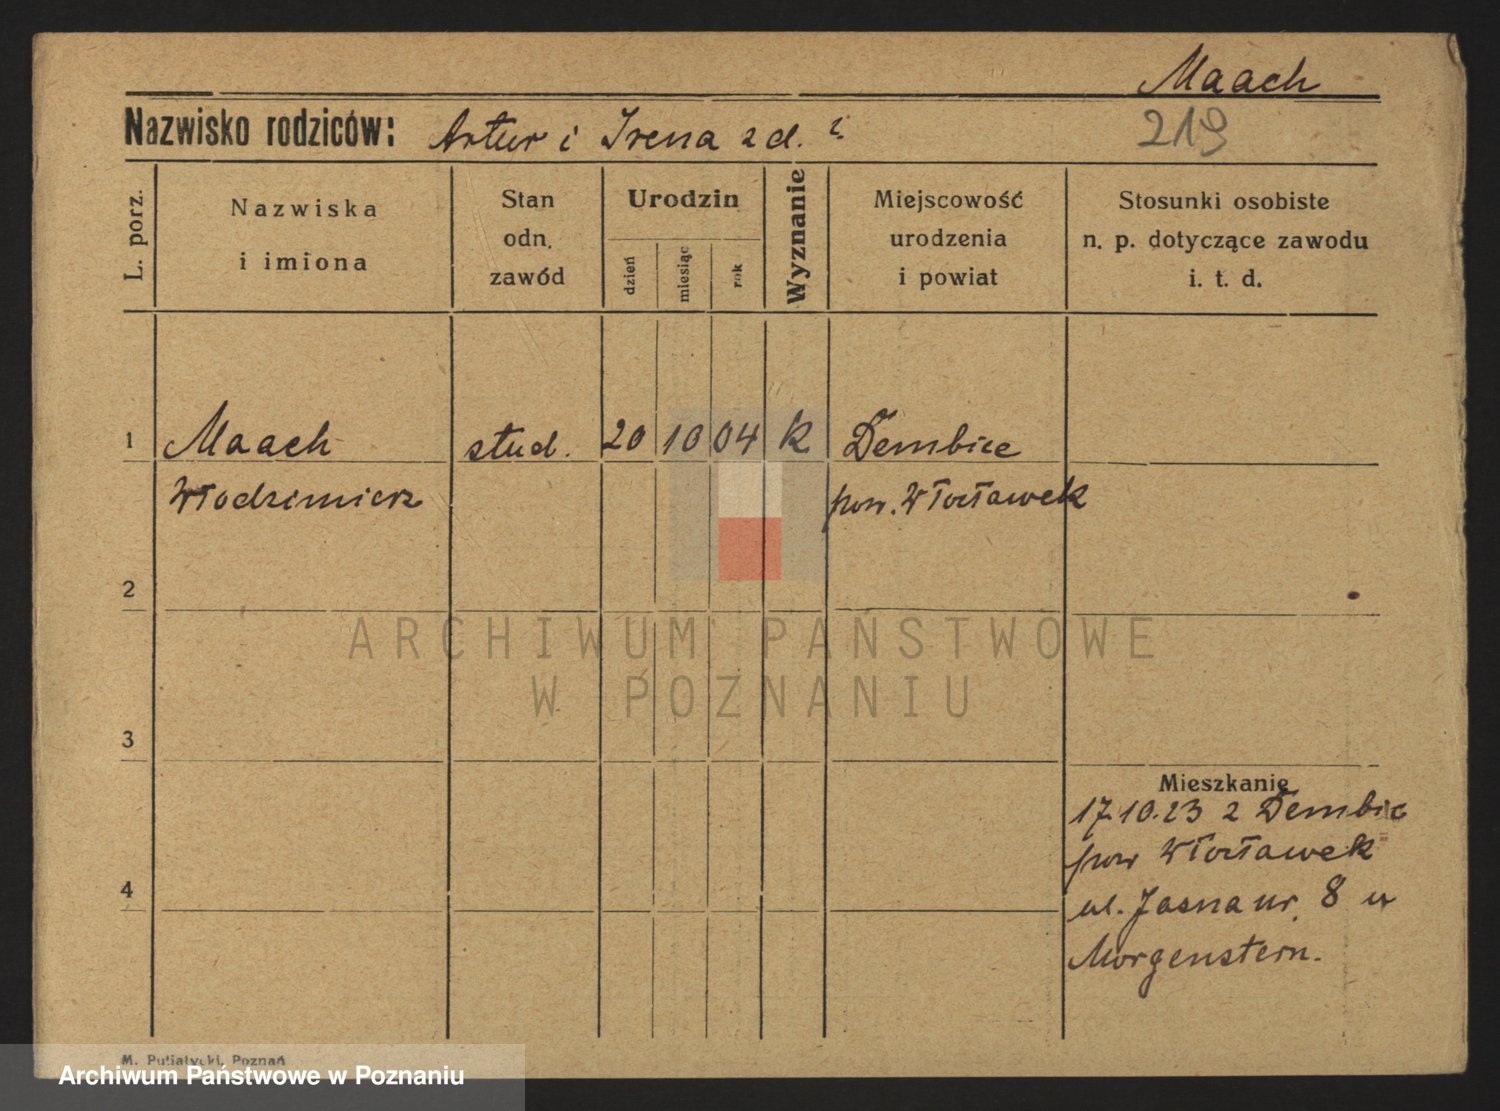 Maach
Nazwisko rodziców: Artur i Irena z d. ?
219
L. porz.
Nazwiska
i imiona
Stan
odn.
zawód
Urodzin
dzień
miesiąc
rok
Wyznanie
Miejscowość
urodzenia
i powiat
Stosunki osobiste
n. p. dotyczące zawodu
i. t. d.
1 Maach stud. 20 10 04 k Dembice
Włodzimierz pow. Włocławek
2
ARCHIWUM PAŃSTWOWE
W POZNANIU
3
Mieszkanie
17.10.23 z Dembic
pow Włocławek
4
ul. Jasna nr. 8 u
Morgenstern.
M. Putiatycki, Poznań
Archiwum Państwowe w Poznaniu